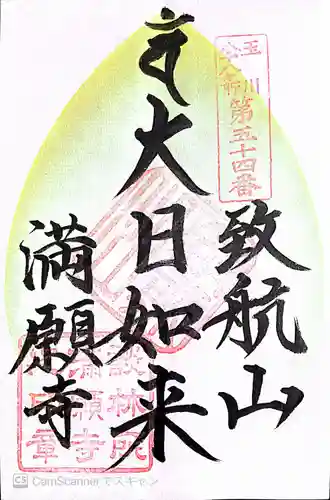 玉川
八十八ヶ所
第五十四番
致航山
大日如来
満願寺
CS CamScanner でスキャン